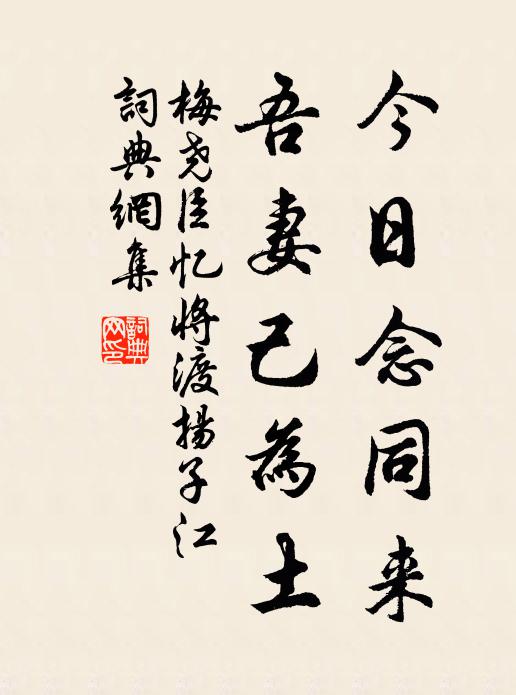 今日念同来
吾妻已為土
梅尧臣忆将渡揚子江
詞典網集
詞典网印